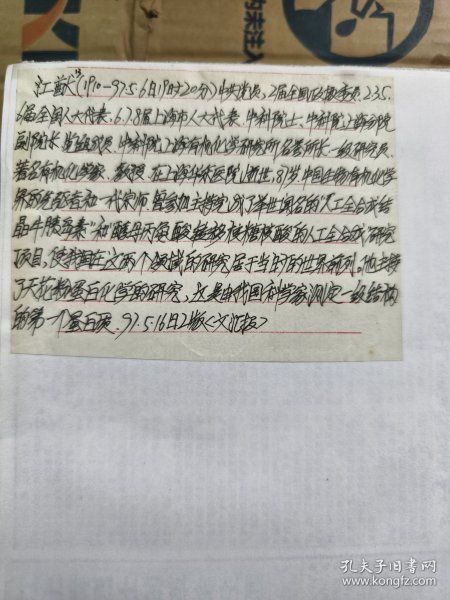 的未注入
汪猷(1910—97.5.6日19时20分)中共党员、2届全国政协委员、2.3.5.
6届全国人大代表、6.7.8届上海市人大代表、中科院士、中科院上海分院
副院长、党组成员、中科院上海有机化学研究所名誉所长、一级研究员、
著名有机化学家、教授、在上海华东医院逝世、87岁中国生物有机化学
界的先驱者和一代宗师 曾参加主持完成了举世闻名的“人工全合成结
晶牛胰岛素”和酵母丙氨酸转移核糖核酸的人工全合成”研究
项目、使我国在这两个领域的研究居于当时的世界前列。他主持
了天花粉蛋白化学的研究、这是由我国科学家测定一级结构
的第一个蛋白质、97.5.16日2版〈文汇报〉
孔夫子旧书网
www.kongfz.com